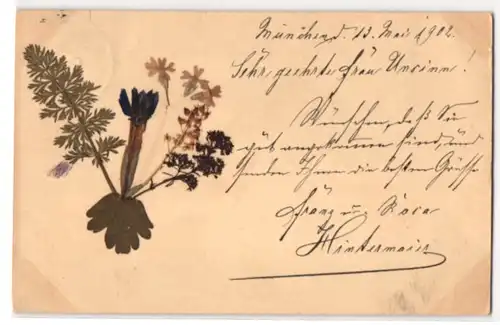 München d. 13. Mai 1902.
Sehr geehrte Frau !
Wünschen, daß Sie
gut angekommen sind, und
senden Ihnen die besten Grüsse
Franz u. Rosa
Hintermaier